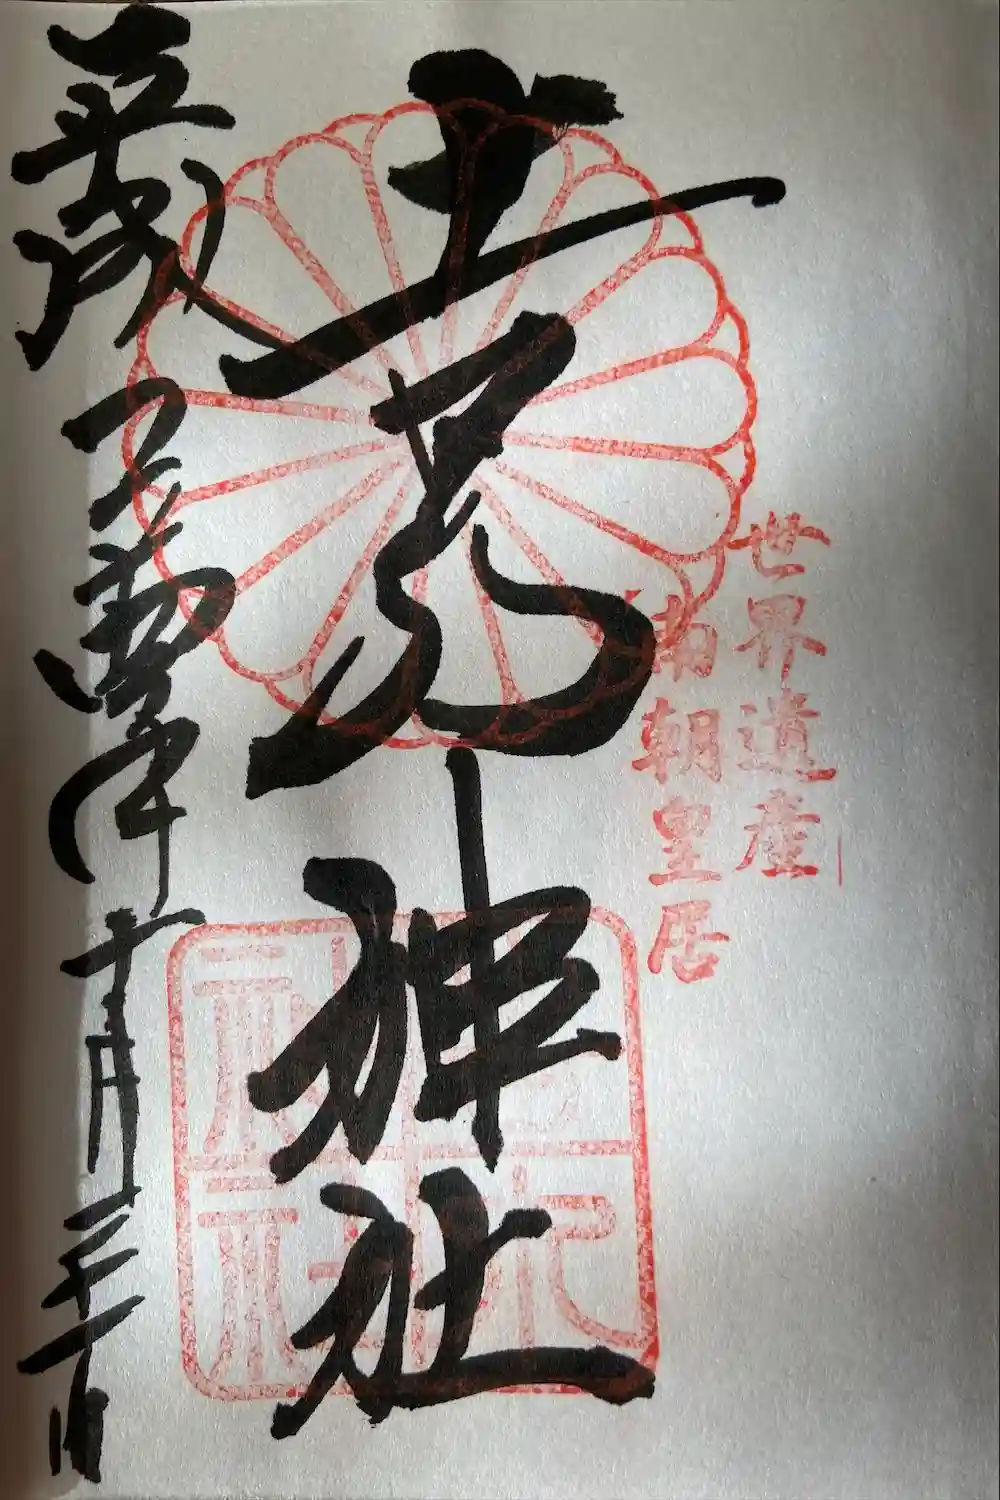 世界遺産
南朝皇居
吉水神社
平成 年十月三十日